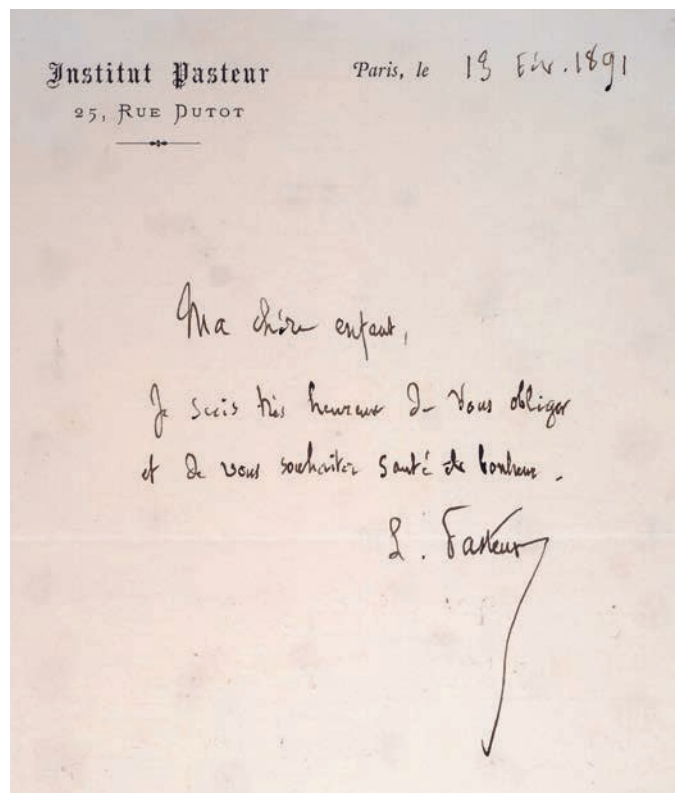 Institut Pasteur
25, RUE DUTOT
Paris, le 13 Fév. 1891
Ma chère enfant,
Je suis très heureux de vous obliger
et de vous souhaiter santé et bonheur.
L. Pasteur